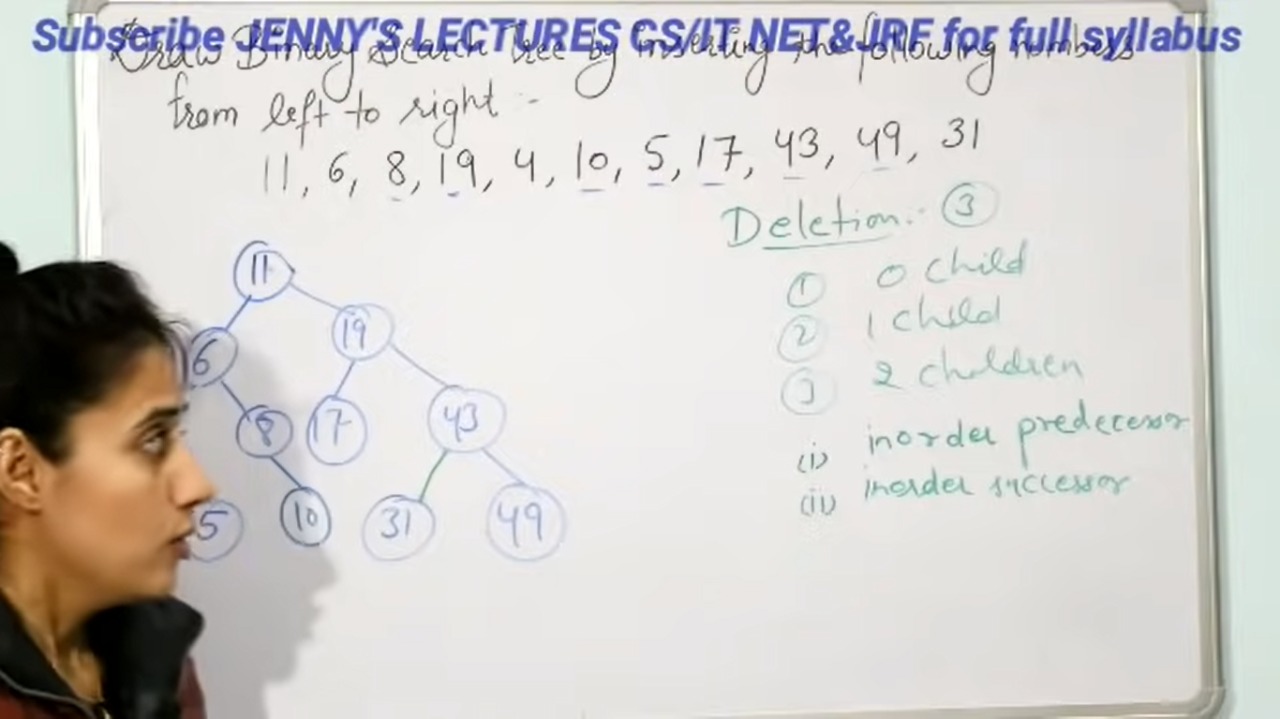 Subscribe JENNY'S LECTURES CS/IT NET&JRF for full syllabus
Draw Binary Search Tree by inserting the following numbers
from left to right :-
11, 6, 8, 19, 4, 10, 5, 17, 43, 49, 31
Deletion :- 3
1 0 child
2 1 child
3 2 children
(i) inorder predecessor
(ii) inorder successor
11
6 19
8 17 43
5 10 31 49